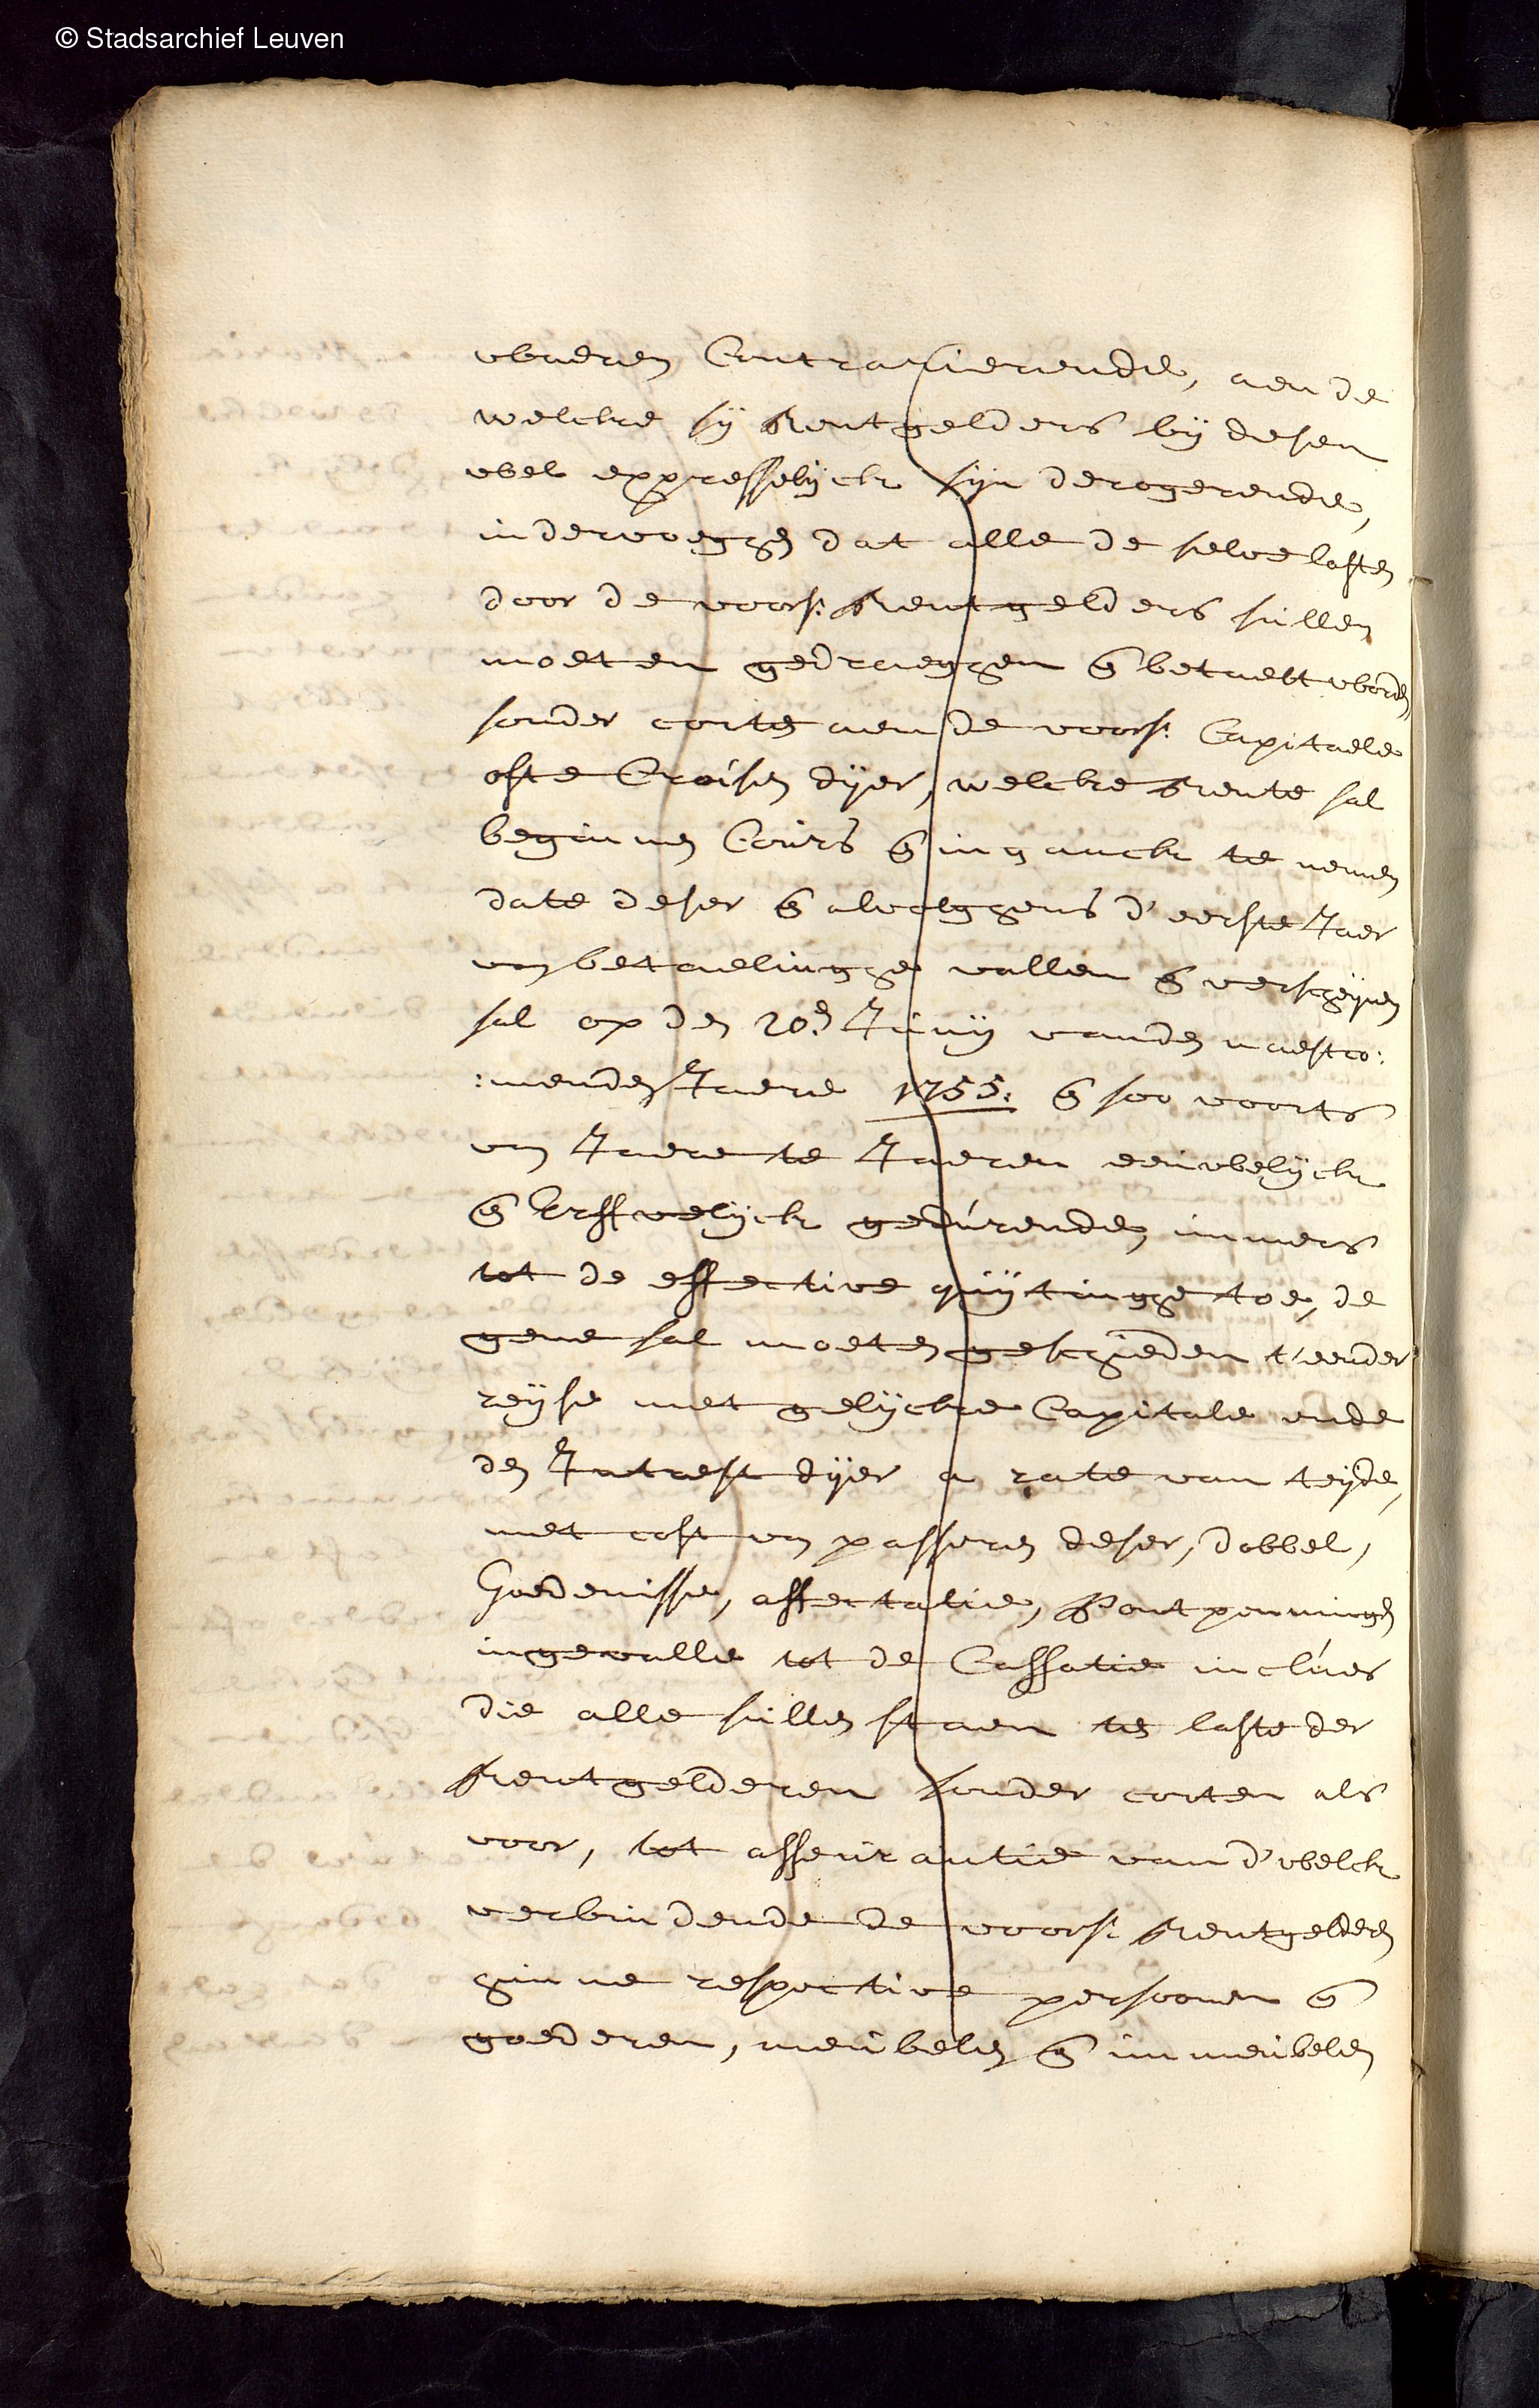 © Stadsarchief Leuven
waeren Contrarierende, aen de
welcke sij Rentgelders bij desen
wel expresselijck sijn derogerende,
indervoeggen dat alle de selve lasten
door de voors: Rentgelders sullen
moeten gedraeggen & betaelt worden
sonder corten aen de voors: Capitaele
ofte Croisen dijer, welcke Rente sal
beginnen Cours & inganck te nemen
date deser & alvolggens d'eerste Jaer
van betaelingge vallen & verschijnen
sal op den 20en Junij vanden naestco:
:menden Jaere 1755: & soo voorts
van Jaere te Jaeren eeuwelijck
& Erffvelijck gedurende, immers
tot de effective quijtingge toe, de
gene sal moeten geschieden t'eender
reijse met gelijcke Capitale ende
den Intrest dijer a rate van teijde,
met cost van passeren deser, dobbel,
Goedenisse, affectatie, Pontpenningen
ingevalle tot de Cassatie incluis
die alle sullen staen ten laste der
Rentgelderen sonder corten als
voor, tot asseurantie van d'welck
verbindende de voors: Rentgelderen
hunne respective persoonen &
goederen, meubelen & immeubelen